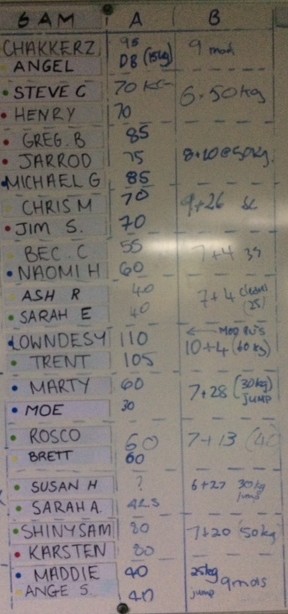 6 AM A B
CHAKKERZ 95 9 mod
ANGEL DB (15kg)
STEVE C 70 KS 6.50kg
HENRY 70
GREG.B 85
JARROD 75 8+10@50kg.
MICHAEL G 85
CHRIS M 70 9+26 sc
JIM S. 70
BEC.C 55 7+4 35
NAOMI H 60
ASH R 40 7+4 (25)
SARAH E 40
LOWNDESY 110 ← MOD PU'S
TRENT 105 10+4 (60 kg)
MARTY 60 7+28 (30kg)
MOE 30 JUMP
ROSCO 60 7+13 (40
BRETT 60
SUSAN H ? 6+27 30kg
SARAH A. 42.5 jump
SHINYSAM 80 7+20 50kg
KARSTEN 80
MADDIE 40 25kg 9mods
ANGE S 40 jump